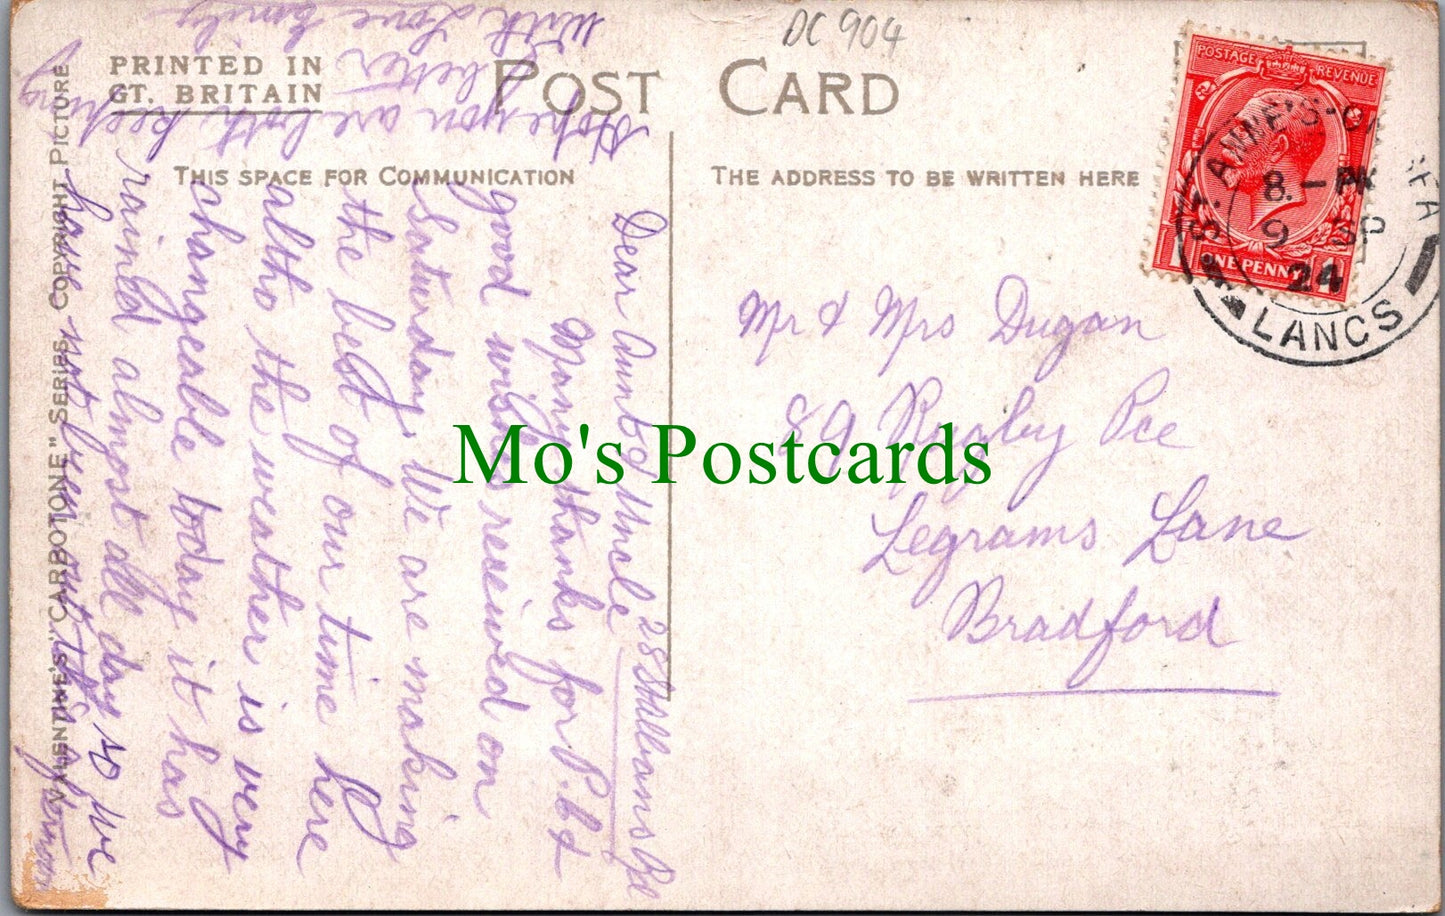 DC 904
PRINTED IN
GT. BRITAIN
POST CARD
THIS SPACE FOR COMMUNICATION
THE ADDRESS TO BE WRITTEN HERE
VALENTINE'S "CARBOTONE" SERIES, COPYRIGHT PICTURE
POSTAGE REVENUE
ONE PENNY
ST. ANNE'S-ON
8.- PM
9 SP
24
LANCS
Mr & Mrs Dugan
89 Rugby Pce
Legrams Lane
Bradford
28 St Albans Rd
Dear Aunt & Uncle
Many thanks for P.C &
good wishes received on
Saturday. We are making
the best of our time here
altho the weather is very
changeable today it has
rained almost all day so we
have not been out this
Hope you are both keeping
better
With Love Emily
Mo's Postcards